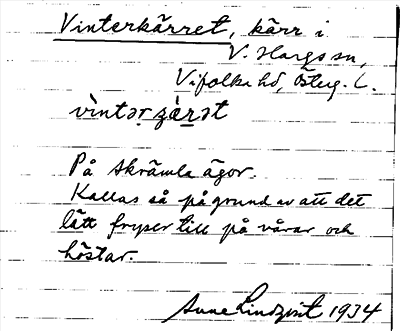 Vinterkärret, kärr i
V. Hargs sn,
Vifolka hd, Österg. L.
vìntər̥ ʒär̥ət
På Skrämla ägor.
Kallas så på grund av att det
lätt fryser till på vårar och
höstar.
Sune Lindqvist 1934